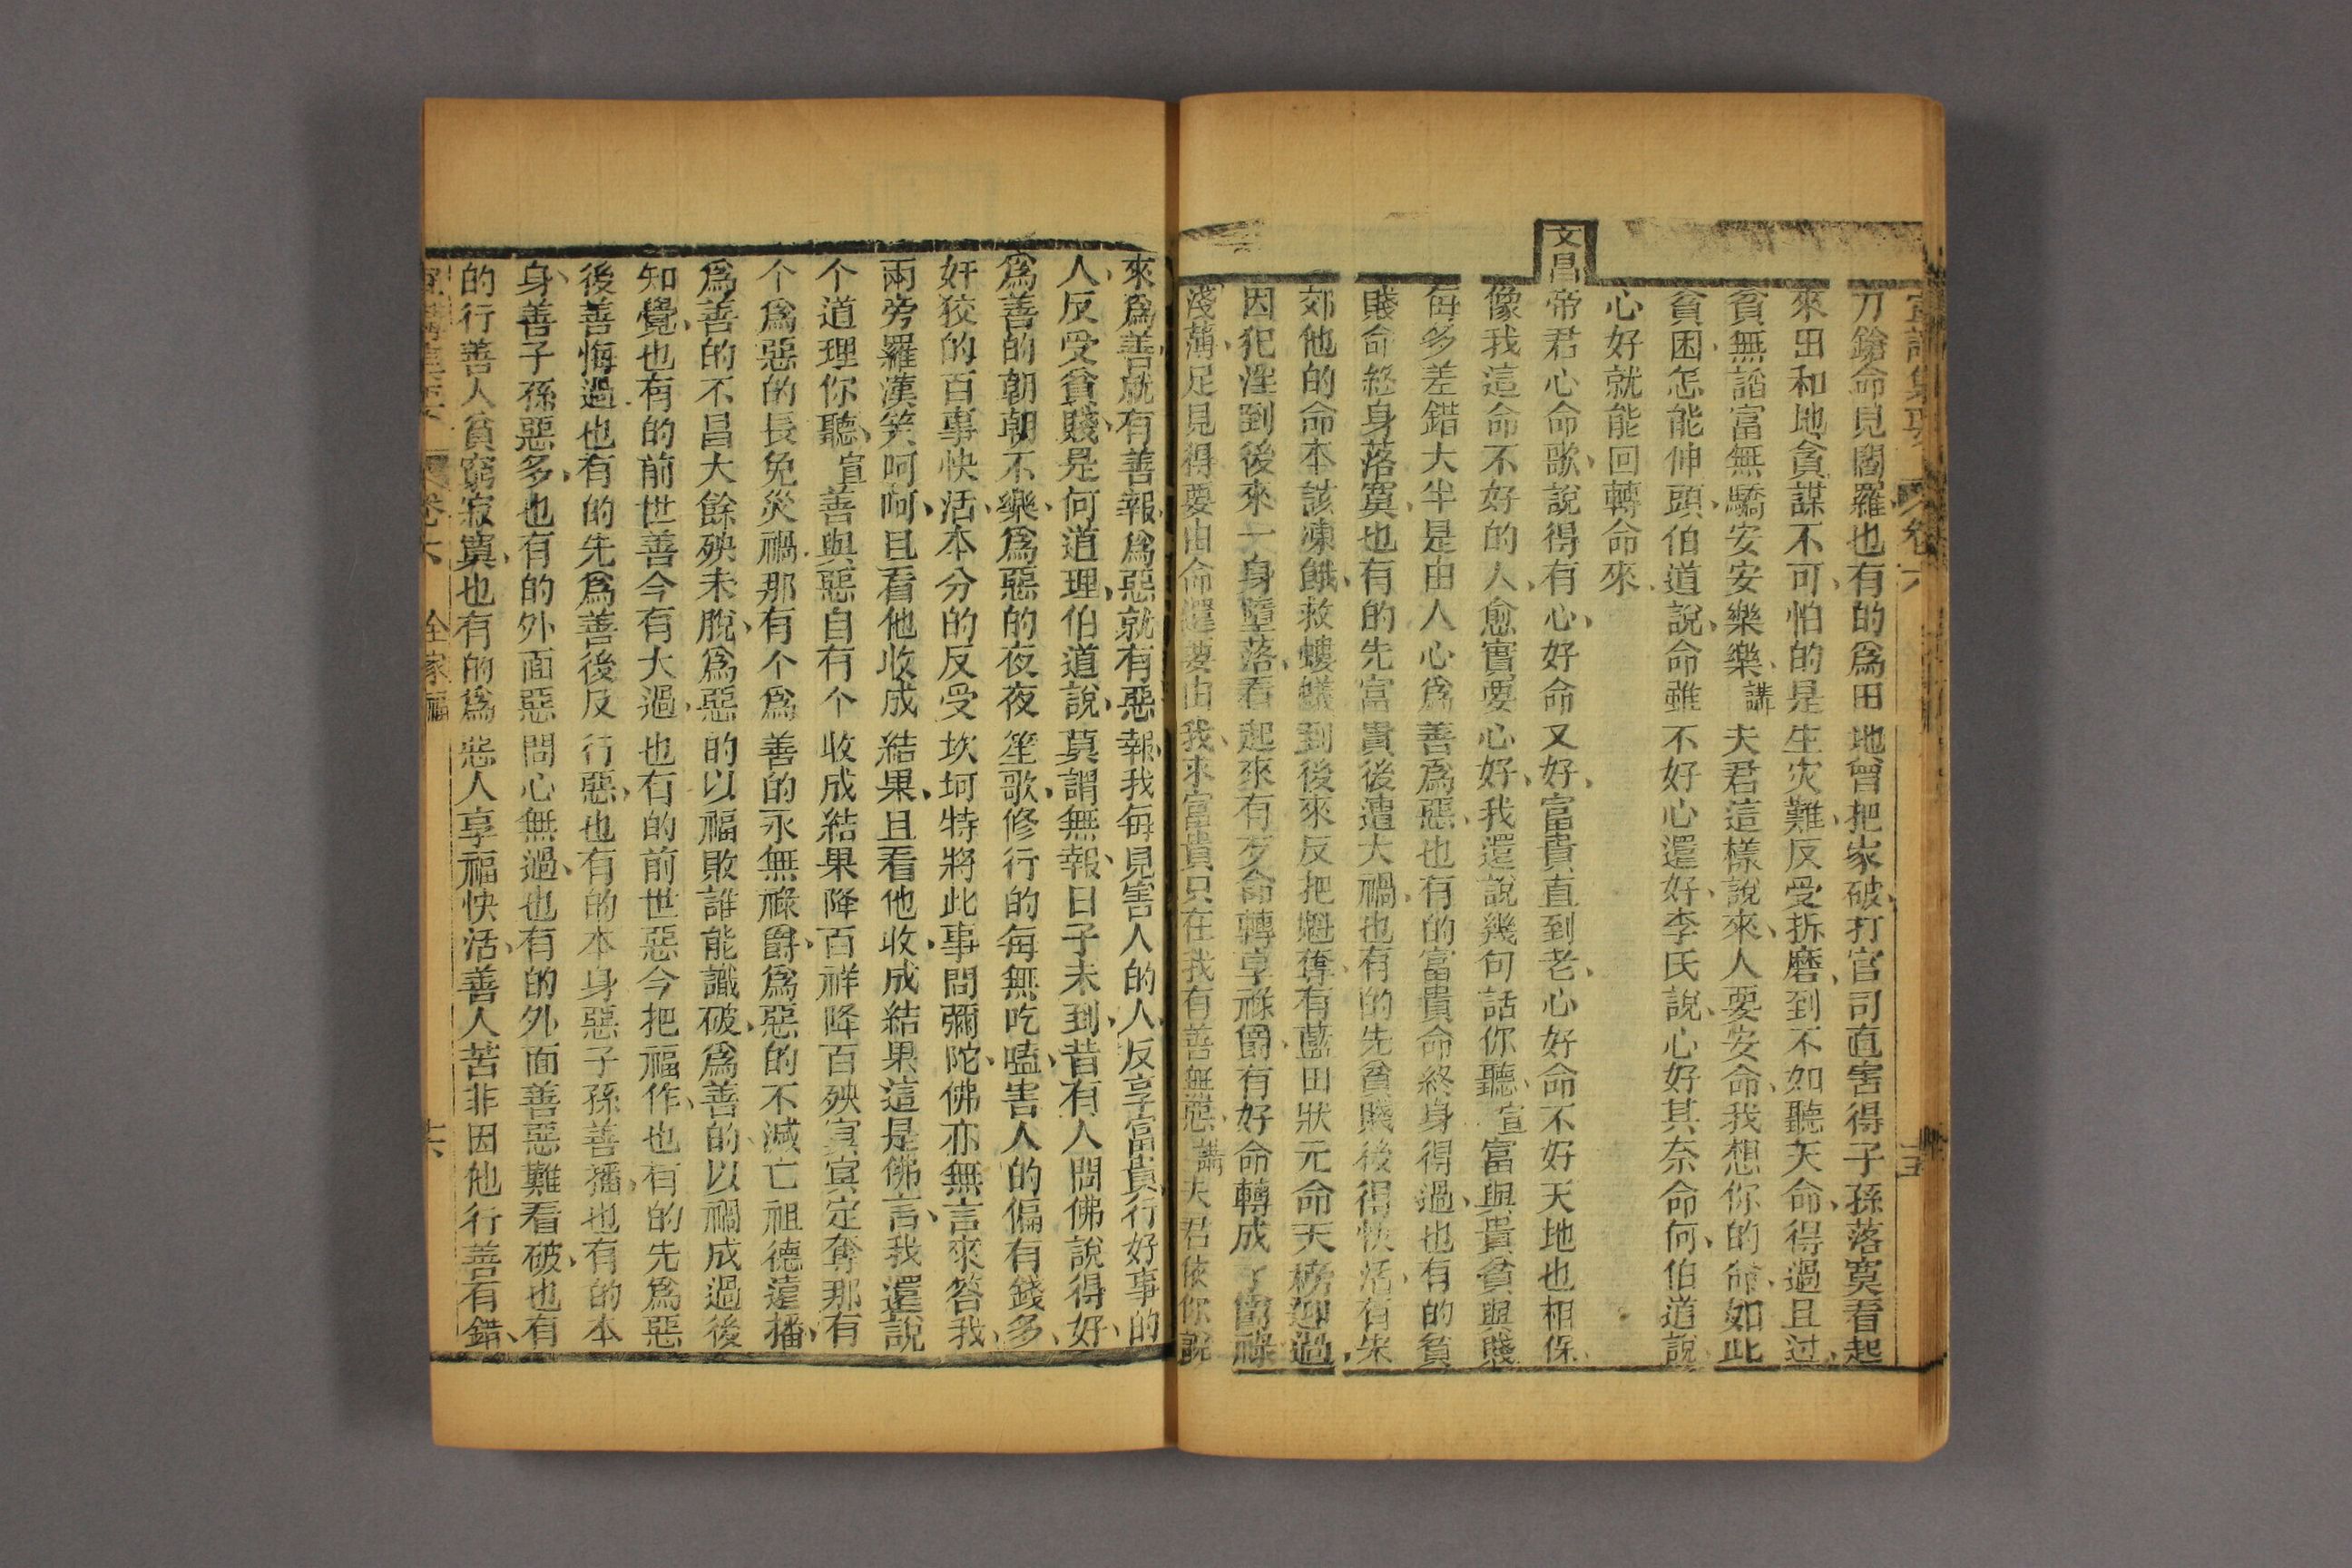 宣講集要 卷六 十五
刀鎗命見閻羅也有的爲田地曾把家破、打官司直害得子孫落寞看起
來田和地貪謀不可、怕的是生灾難、反受折磨、到不如聽天命、得過且过、
貧無謟富無驕安安樂樂、講夫君這樣說來、人要安命、我想你的命、如此
貧困、怎能伸頭、伯道說、命雖不好心還好、李氏說、心好其奈命何、伯道說
心好就能回轉命來、
文昌帝君心命歌、說得有心、好命又好、富貴直到老、心好命不好天地也相保
像我這命不好的人、愈實要心好、我還說幾句話你聽、宣富與貴貧與賤
每多差錯大半是由人心爲善爲惡、也有的富貴命終身得過、也有的貧
賤命終身落寞、也有的先富貴後遭大禍、也有的先貧賤後得快活、有宋
郊他的命本該凍餓、救螻蟻到後來反把魁奪、有藍田狀元命天榜迎過、
因犯淫到後來一身墮落、看起來有歹命轉享祿爵、有好命轉成了
淺薄、足見得要由命還要由我、求富貴只在我有善無惡、講夫君依你說
來爲善、就有善報、爲惡就有惡報、我每見害人的人、反享富貴、行好事的
人、反受貧賤、是何道理、伯道說、莫謂無報、日子未到、昔有人問佛說得好、
爲善的朝朝不樂、爲惡的夜夜笙歌、修行的每無吃嗑、害人的偏有錢多、
奸狡的百事快活、本分的反受坎坷特將此事問彌陀、佛亦無言來答我、
兩旁羅漢笑呵呵、且看他收成結果、且看他收、成結果這是佛言、我還說
个道理你聽、宣善與惡自有个收成結果降百祥降百殃冥冥定奪那有
个爲惡的長免災禍、那有个爲善的永無祿爵、爲惡的不滅亡祖德遠播、
爲善的不昌大餘殃未脫、爲惡的以福敗誰能識破、爲善的以禍成過後
知覺、也有的前世善今有大過、也有的前世惡今把福作、也有的先爲惡
後善悔過、也有的先爲善後反行惡、也有的本身惡子孫善播、也有的本
身、善子孫惡多、也有的外面惡問心無過、也有的外面善惡難看破、也有
的行善人貧窮寂寞、也有的爲惡人享福快活、善人苦非因他行善有錯、
宣講集要 卷六 全家福 十六